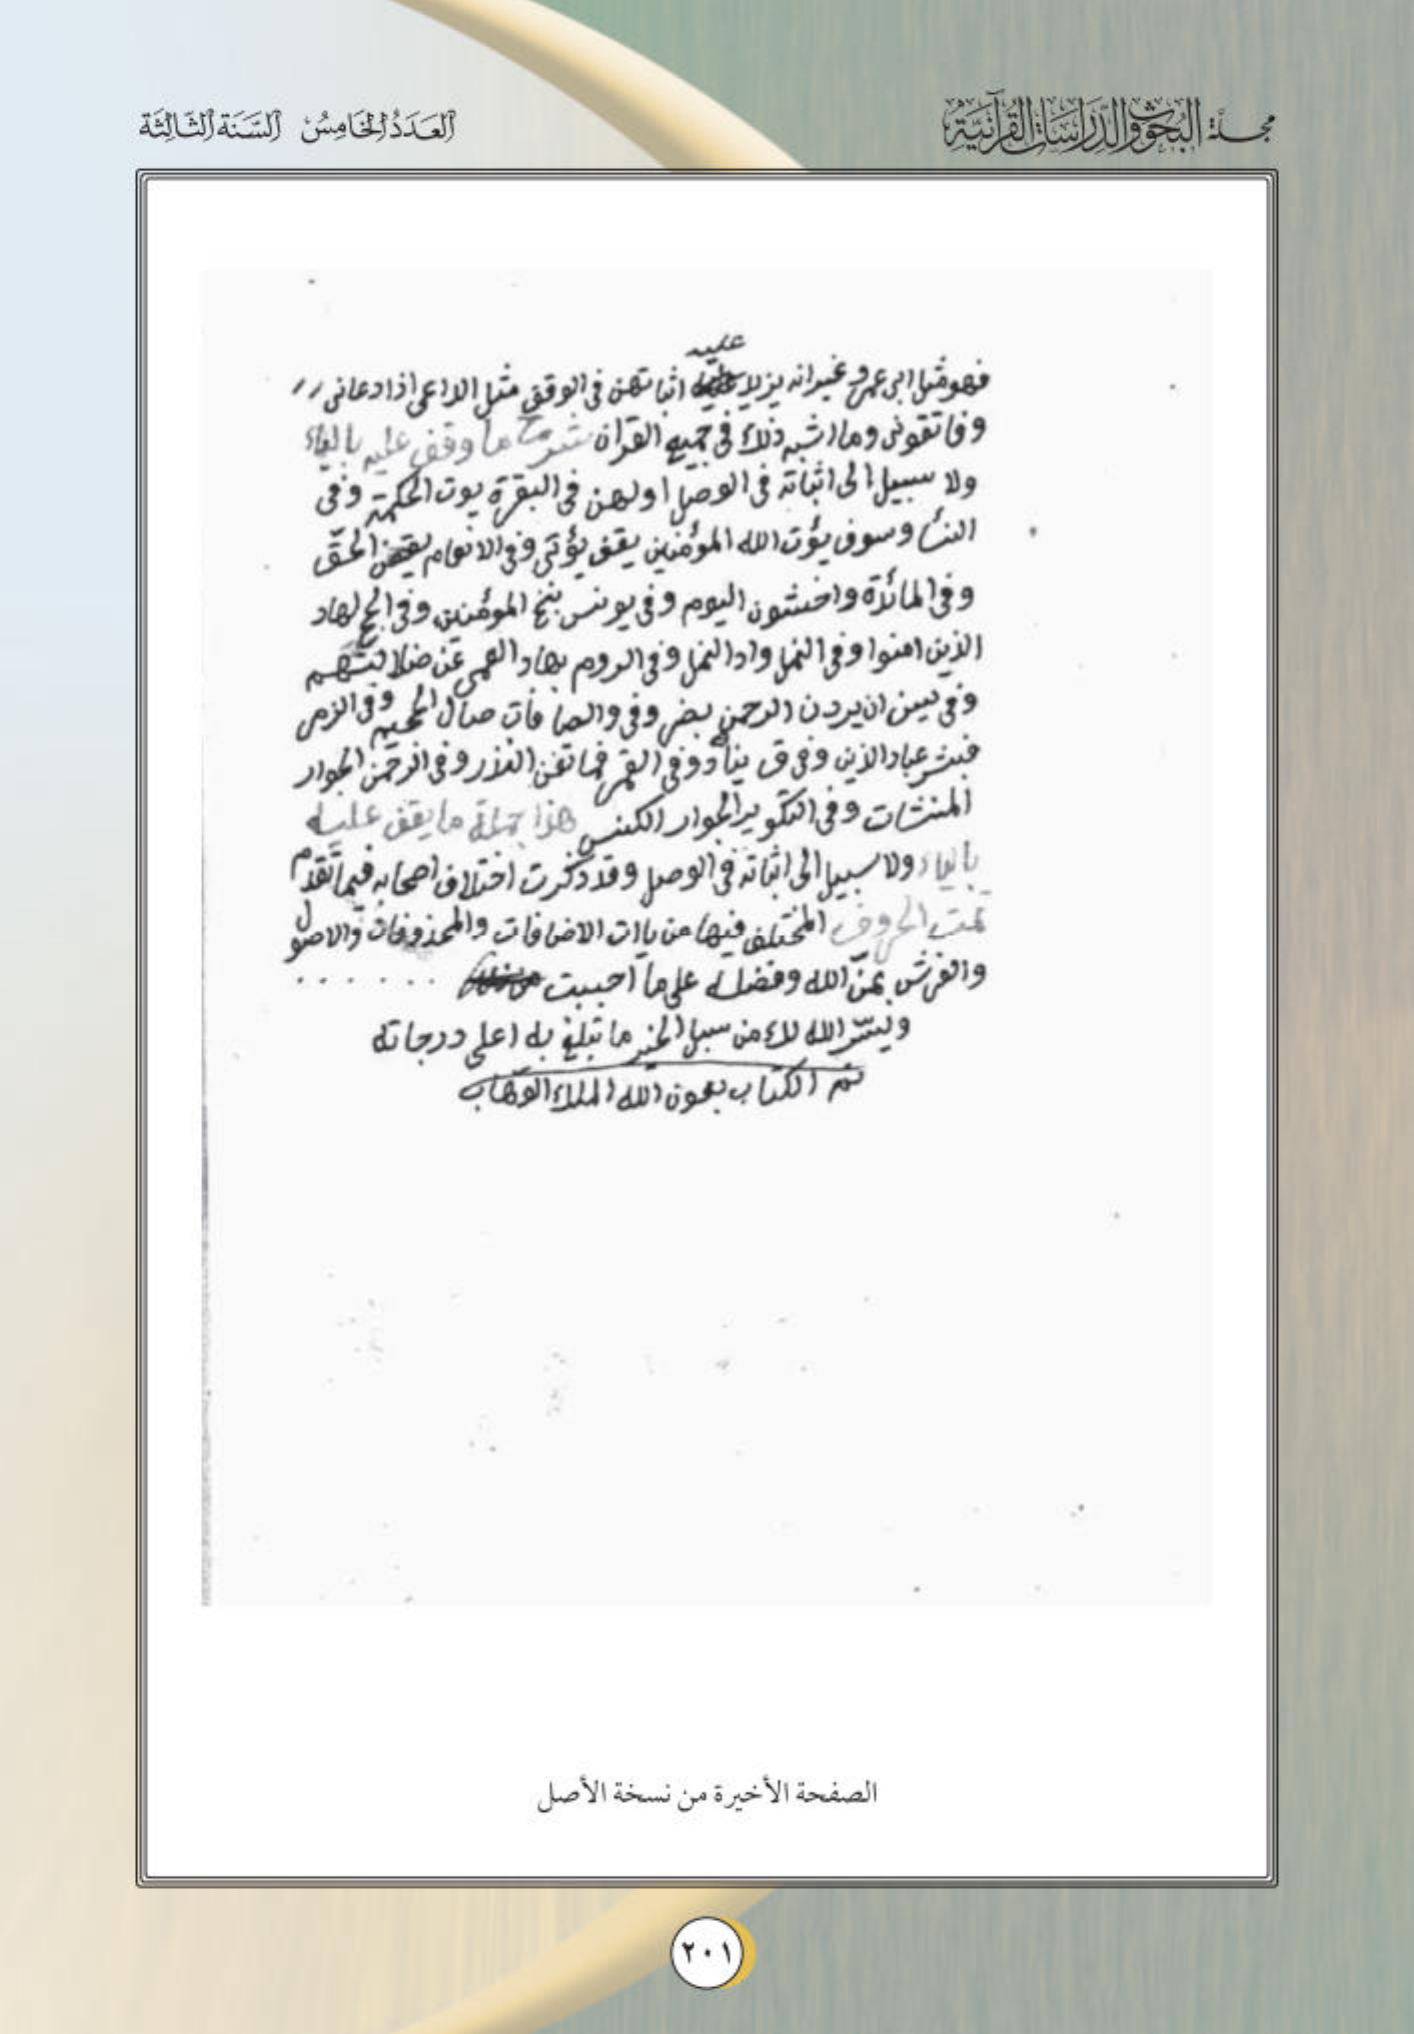 مجلة البحوث والدراسات القرآنية
العدد الخامس السنة الثالثة
عليه
فهو مثل ابى عمرو غير انه يزيد اثباتهن فى الوقف مثل الداعى اذا دعانى
وفاتقونى وما اشبه ذلك فى جميع القران شرح ما وقف عليه بالياء
ولا سبيل الى اثباته فى الوصل اولهن فى البقرة يوت الحكمة وفى
النسا وسوف يؤت الله المؤمنين يقف يؤتى وفى الانعام يقض الحق
وفى المائدة واخشون اليوم وفى يونس ننج المؤمنين وفى الحج لهاد
الذين امنوا وفى النمل واد النمل وفى الروم بهاد العمى عن ضلالتهم
وفى يس ان يردن الرحمن بضر وفى والصافات صال الجحيم وفى الزمر
فبشر عباد الذين وفى ق يناد وفى القمر فما تغن النذر وفى الرحمن الجوار
المنشات وفى التكوير الجوار الكنس هذا جملة ما يقف عليه
بالياء ولا سبيل الى اثباته فى الوصل وقد ذكرت اختلاف اصحابه فيما تقدم
تمت الحروف المختلف فيها من ياات الاضافات والمحذوفات والاصول
والفرش بمنّ الله وفضله على ما احببت . . . . . .
ويسّر الله لك من سبل الخير ما تبلغ به اعلى درجاته
تم الكتاب بعون الله الملك الوهاب
الصفحة الأخيرة من نسخة الأصل
٢٠١